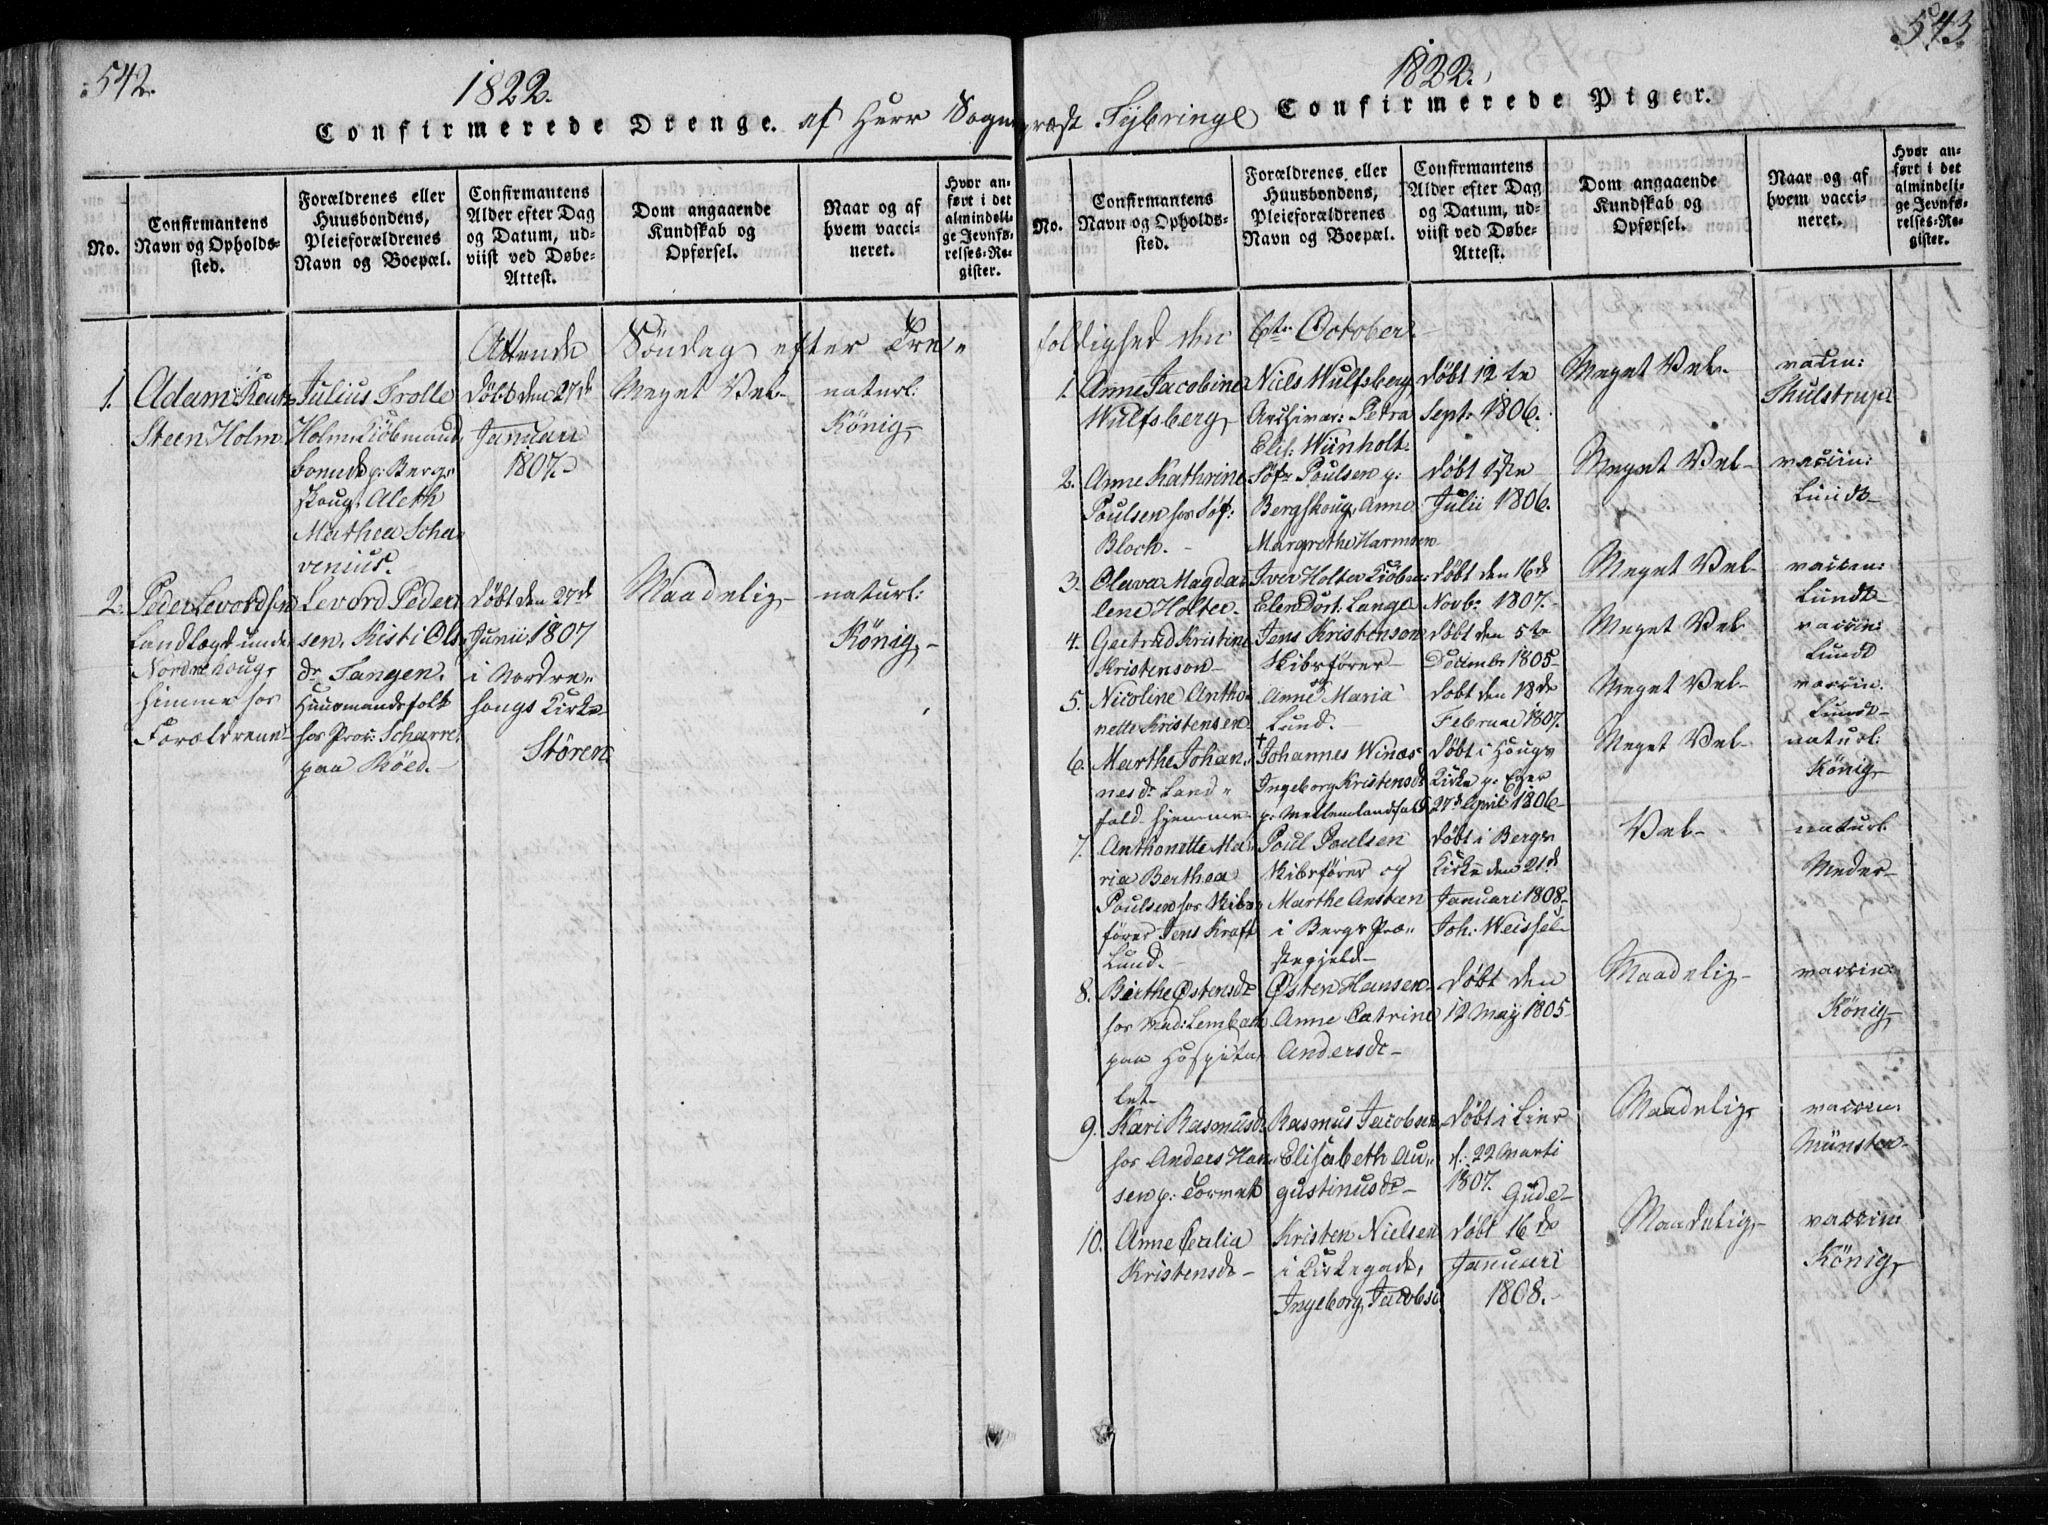 542.
1822.
Confirmerede Drenge. af Herr Sogne
No.
Confirmantens
Navn og Opholds-
sted.
Forældrenes eller
Huusbondens,
Pleieforældrenes
Navn og Boepæl.
Confirmantens
Alder efter Dag
og Datum, ud-
viist ved Døbe-
Attest.
Dom angaaende
Kundskab og
Opførsel.
Naar og af
hvem vacci-
neret.
Hvor an-
ført i det
almindeli-
ge Jevnfø-
relses-Re-
gister.
Attende Söndag efter Tre-
1.
Adam
Steen Holm
Julius Trolle
Holm Kiöbmand
boende p: Berg-
skoug, Aleth
Mathea Scha-
venius.
Döbt den 27de
Januari
1807.
Meget Vel
naturl:
König
2.
Peder Levordsen
Landlægd under
Nordrehoug,
hjemme hos
Forældrene
Levord Peder
sen, Kisti Ols
dr Tangen.
Huusmandsfolk
hos Prov: Scharre
paa Röed.
döbt den 27de
Junii 1807
i Nordre-
hougs Kirke
Stören
Maadelig
naturl:
König
543.
1822.
præst Tybring Confirmerede Piger.
No.
Confirmantens
Navn og Opholds-
sted.
Forældrenes eller
Huusbondens,
Pleieforældrenes
Navn og Boepæl.
Confirmantens
Alder efter Dag
og Datum, ud-
viist ved Døbe-
Attest.
Dom angaaende
Kundskab og
Opførsel.
Naar og af
hvem vacci-
neret.
Hvor an-
ført i det
almindeli-
ge Jevnfø-
relses-Re-
gister.
foldighed den 6te October
1.
Anne Jacobine
Wulfsberg
Niels Wulfsberg
Archivar: Petra
Elis: Wiinholt.
döbt 12te
Septr 1806.
Meget Vel
vaccin:
Thulstrup
2.
Anne Kathrine
Poulsen hos
Bloch.
Poulsen p:
Bergskoug, Anne
Margrethe Harmsen
döbt 1ste
Julii 1806.
Meget Vel
vaccin:
Lundt
3.
Oleava Magda
lene Holter
Iver Holter Kiöbm:
Elen Dort: Lange
döbt den 16de
Novbr 1807.
Meget Vel
vaccin:
Lundt
4.
Gertrud Kristine
Kristenson
Jens Kristenson
Skibsförer
og
döbt den 5te
December 1805
Meget Vel
vaccin:
Lundt
5.
Nicoline Antho
nette Kristensen
Anne Maria
Lund.
döbt den 18de
Februar 1807.
Meget Vel
vaccin.
Lundt
6.
Marthe Johan-
nesdr Land-
fald hjemme
† Johannes Winæs
Ingeborg Kristensdr
p: Mellemlandfald
döbt i Hougs
Kirke p: Eger
27de April 1806
Meget Vel
naturl:
König
7.
Anthonette Ma-
ria Berthea
Poulsen hos Skibs
förer Jens Kraft
Lund.
Poul Poulsen
Skibsförer og
Marthe
i Bergs Præ-
stegjeld
döbt i Bergs
Kirke den 21de
Januari 1808
Joh: Weissel
Vel
naturl.
Meder
8.
Birthe Østensdr
hos Mad: Lembach
paa Hospita-
let
Østen Hansen
Anne Catrine
Andersdr
döbt den
12 Maij 1805
Maadelig
vaccin:
König
9.
Kari Rasmusdr
hos Anders Han-
sen p: Tormet
Rasmus Jacobsen
Elisabeth Au-
gustinusdr
döbt i Lier
d: 22 Marti
1807. Gude
Maadelig
vaccin:
Münster
10.
Anne Cecilia
Kristensdr
Kristen Nielsen
i Kirkegade,
Ingeborg Jacobsd
döbt 16de
Januari
1808.
Maadelig
vaccin:
König